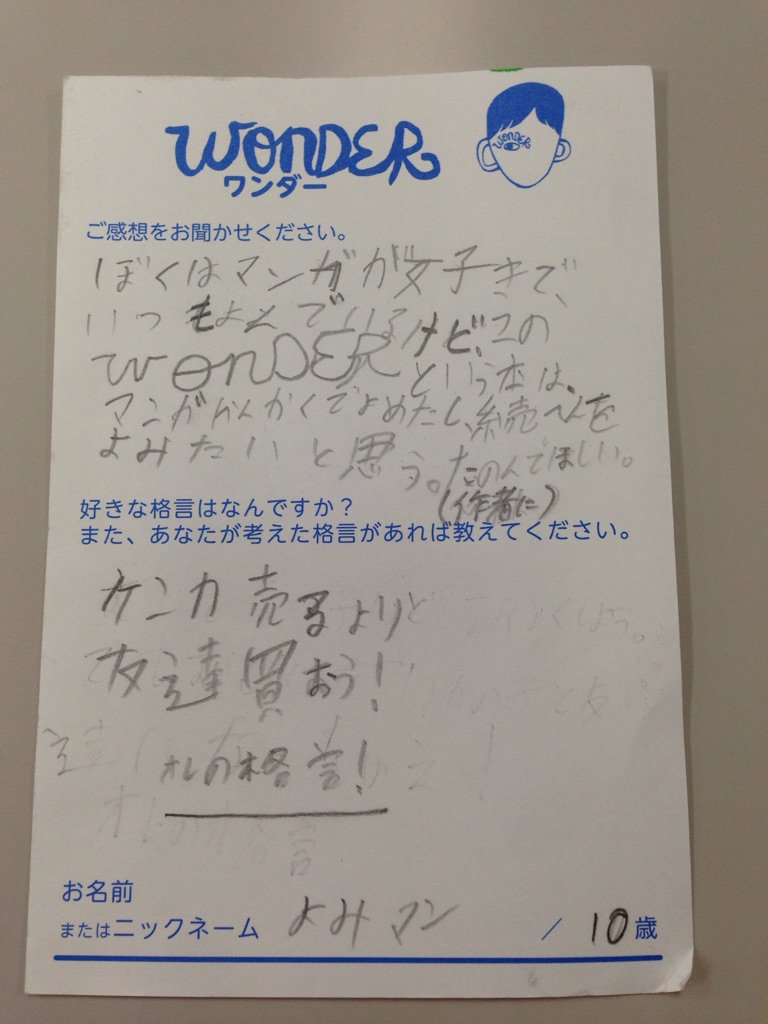 WONDER
ワンダー
WONDER
ご感想をお聞かせください。
ぼくはマンガが好きで、
いつもよんでいるけど、この
WONDERという本は、
マンガかんかくでよめたし、続売へんを
よみたいと思う。たのんでほしい。
(作者に)
好きな格言はなんですか?
また、あなたが考えた格言があれば教えてください。
ケンカ売るより
友達買おう!
オレの格言!
お名前
またはニックネーム よみマン / 10歳